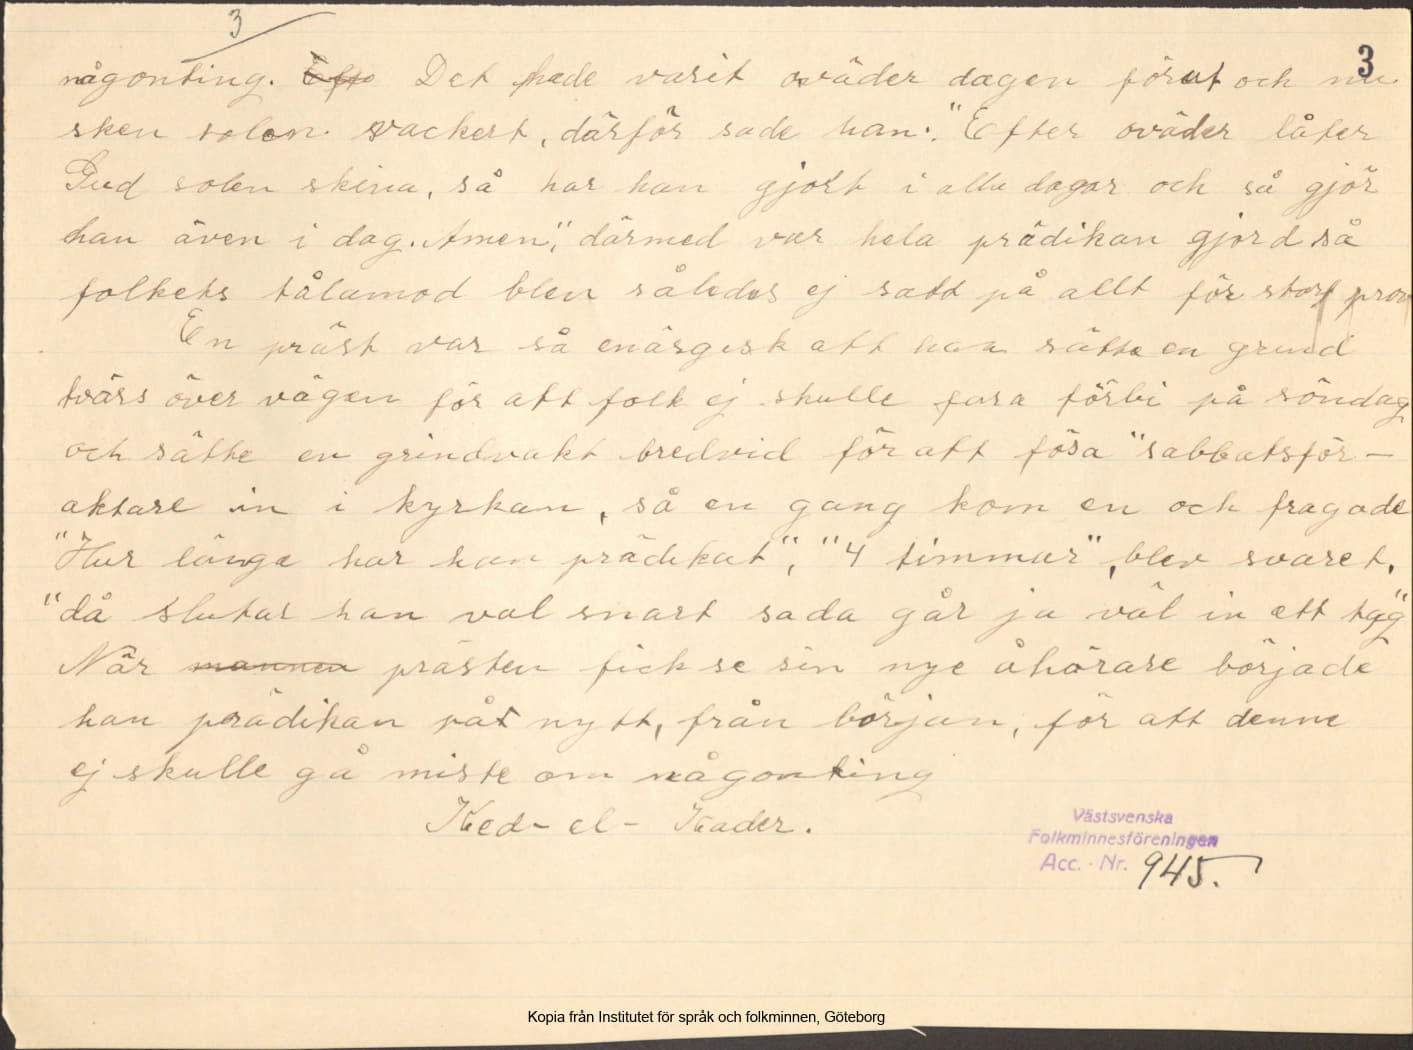 3
3
någonting. Det hade varit oväder dagen förut och nu
sken solen vackert, därför sade han: "Efter oväder låter
Gud solen skina, så har han gjort i alla dagar och så gjör
han även i dag. Amen", därmed var hela prädikan gjord så
folkets tålamod blev således ej satt på allt för stort prov
En präst var så enärgisk att han sätte en grind
tvärs över vägen för att folk ej skulle fara förbi på söndag
och sätte en grindvakt bredvid för att fösa "sabbatsför-
aktare in i kyrkan, så en gang kom en och fragade
"Hur länge har han prädikat", "4 timmar", blev svaret,
"då slutar han val snart sa da går ja väl in ett tag"
När mannen prästen fick se sin nye åhörare började
han prädikan på nytt, från början, för att denne
ej skulle gå miste om någonting
Ked-el-Kader.
Västsvenska
Folkminnesföreningen
Acc. - Nr. 945.
Kopia från Institutet för språk och folkminnen, Göteborg